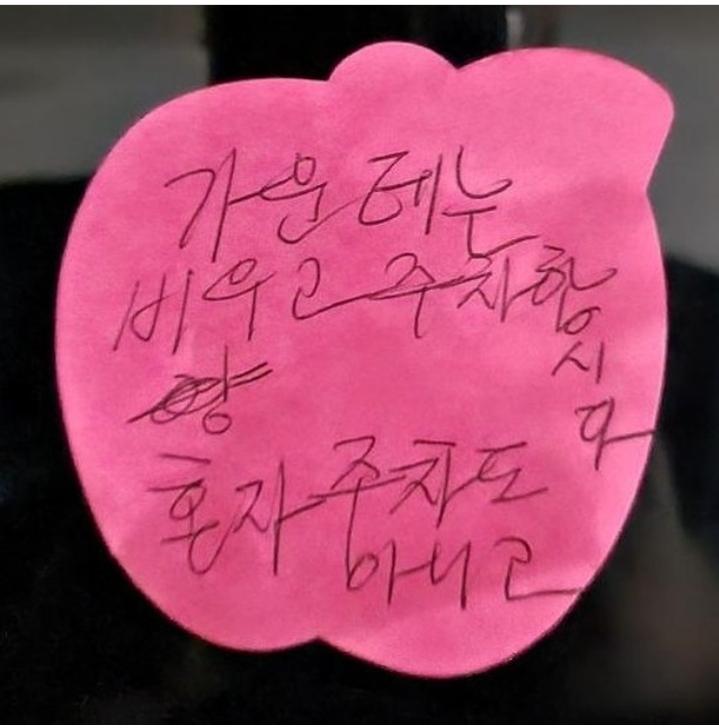 가운테는
비우고 주차항
시다
혼자 주차도
아니고